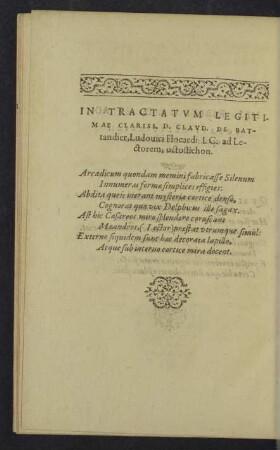 IN TRACTATVM LEGITI-
MAE CLARISS. D. CLAVD. DE BAT-
tandier, Ludouici Flocardi I. C. ad Le-
ctorem, octostichon.
Arcadicum quondam memini fabricasse Silenum
Innumeras forma simplices effigies:
Abdita queis inerant mysteria cortice denso,
Cognoras quæ vix Delphicus ille sagax.
Ast hic Cæsareos miro splendore coruscans
Mæandros, (Lector) præstat vtrunque simul:
Externo siquidem sunt hæc decorata lapillo,
Atque sub interno cortice mira docent.